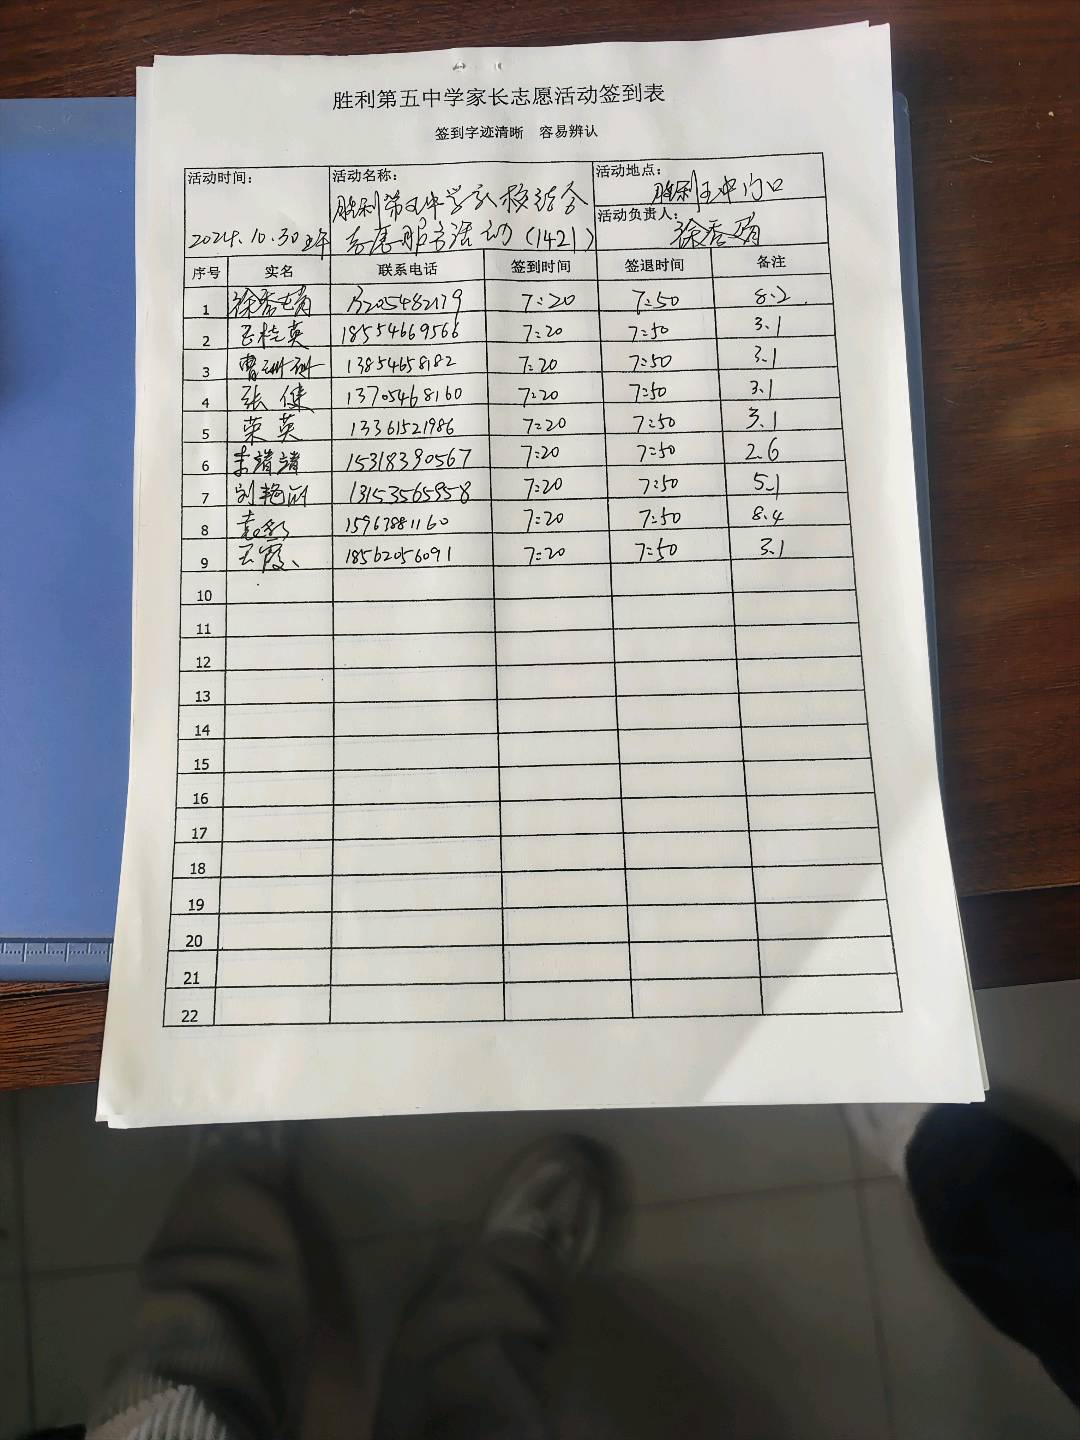 胜利第五中学家长志愿活动签到表
签到字迹清晰 容易辨认
活动时间: 活动名称: 活动地点:
胜利第五中学 胜利五中门口
活动负责人:
2024.10.30 志愿服务活动(1421) 徐秀娟
序号 实名 联系电话 签到时间 签退时间 备注
1 徐秀娟 13205482179 7:20 7:50 8.2
2 王桂英 18554669566 7:20 7:50 3.1
3 曹珊珊 13854658182 7:20 7:50 3.1
4 张健 13705468160 7:20 7:50 3.1
5 荣英 13361521986 7:20 7:50 3.1
6 15318390567 7:20 7:50 2.6
7 刘艳丽 13153565958 7:20 7:50 5.1
8 15963881160 7:20 7:50 8.4
9 王霞 18562056091 7:20 7:50 3.1
10
11
12
13
14
15
16
17
18
19
20
21
22